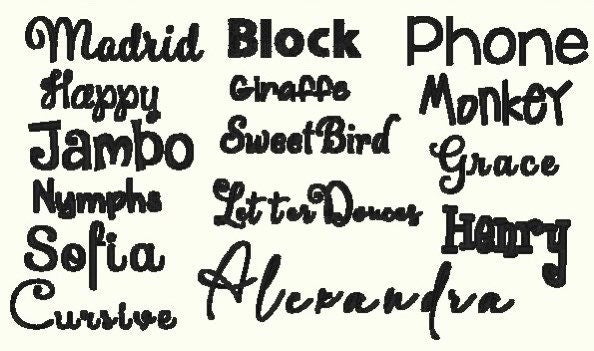 Madrid
Block
Phone
Happy
Giraffe
Monkey
Jambo
SweetBird
Grace
Nymphs
LetterDouces
Henry
Sofia
Alexandra
Cursive